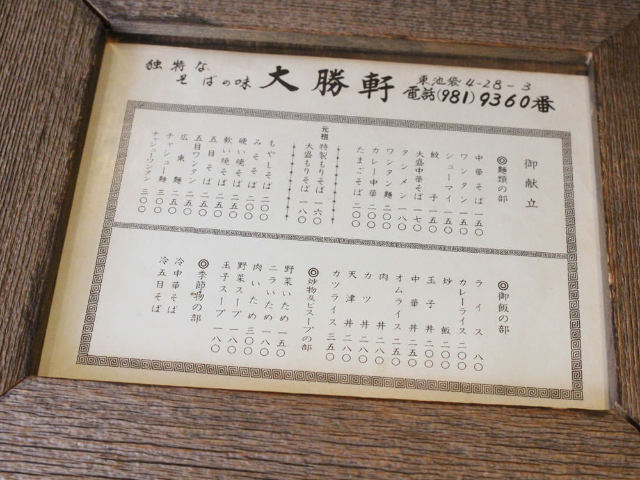 独特な
そばの味
大勝軒
東池袋4-28-3
電話(981)9360番
御献立
◎麺類の部
中華そば 一五〇
ワンタン 一五〇
シューマイ 一五〇
餃子 一五〇
大盛中華そば 一七〇
タンメン 一八〇
ワンタン麺 二〇〇
カレー中華 二〇〇
たまごそば 二〇〇
元祖
特製もりそば 一六〇
大盛もりそば 一八〇
もやしそば 二〇〇
みそそば 二〇〇
硬い焼そば 二〇〇
軟い焼そば 二五〇
五目そば 二五〇
五目ワンタン 二五〇
広東麺 二五〇
チャシュー麺 三〇〇
チャシューワンタン 三〇〇
◎御飯の部
ライス 八〇
カレーライス 二〇〇
炒飯 二〇〇
玉子丼 二〇〇
中華丼 二五〇
オムライス 二五〇
肉丼 二八〇
カツ丼 二八〇
天津丼 二八〇
カツライス 三五〇
◎炒物及ビスープの部
野菜いため 一五〇
ニラいため 一八〇
肉いため 三〇〇
野菜スープ 一八〇
玉子スープ 一八〇
◎季節物の部
冷中華そば
冷五目そば